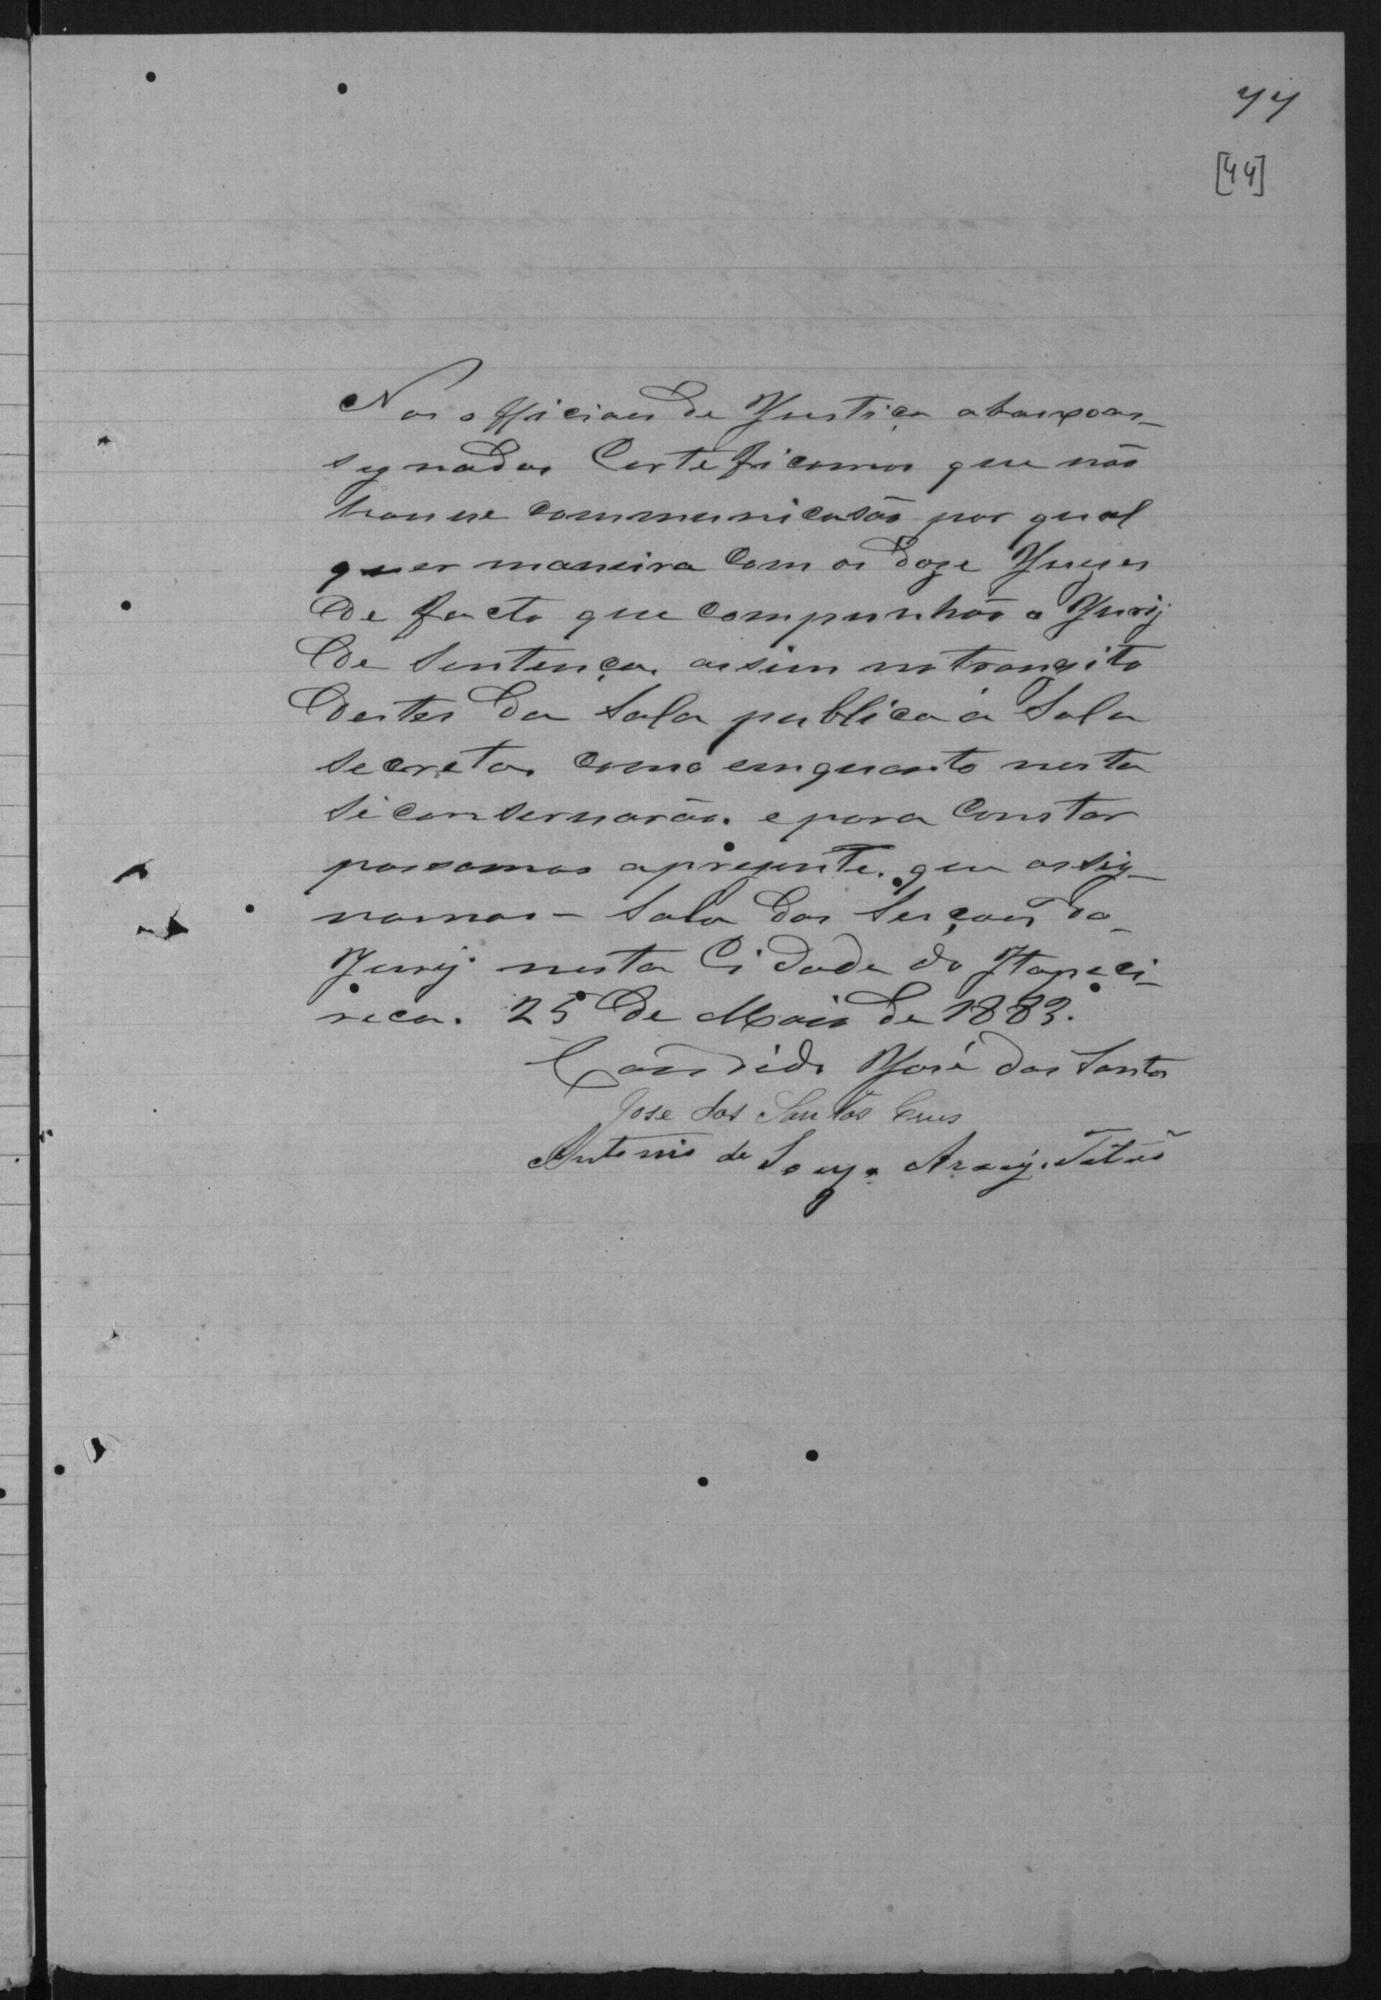 44
[44]
Nos officiaes de Justiça abaixo as-
signados Certeficamos que não
houve communicasão por qual
quer maneira com os doze Juizes
de facto que compunhão o Jury
de Sentença. assim no transito
destes da Sala publica á Sala
secreta. como emquanto nesta
se conservarão. e para constar
passamos a prezente. que assig-
namos - Sala das Serções do
Jury nesta Cidade do Itapeci-
rica. 25 de Maio de 1883.
Candido José dos Santos
Jose dos Santos Crus
Antonio de Souza Araujo Titão